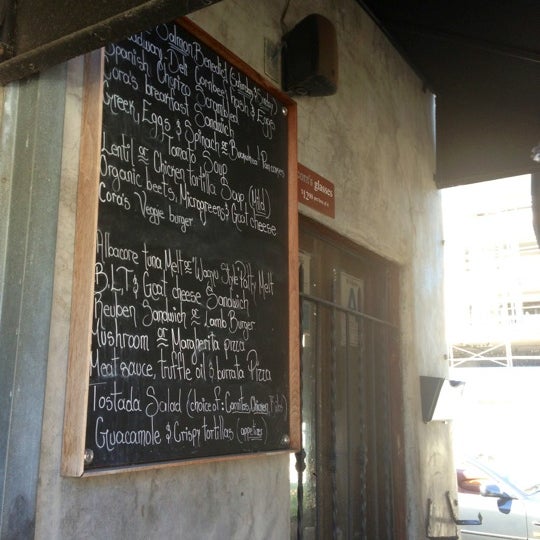 Salmon Benedict (Saturday & Sunday)
Broadway Deli Corned beef hash & Eggs
Spanish Chorizo Scrambled
Cora's breakfast Sandwich
Greek, Eggs & Spinach or Pancakes
Lentil or Tomato Soup
Chicken tortilla Soup (Mild)
Organic beets, Microgreens & Goat cheese
Cora's Veggie burger
Albacore tuna Melt or "Wagyu Style Patty Melt
B.L.T & Goat cheese Sandwich
Reuben Sandwich or Lamb Burger
Mushroom or Margherita pizza
Meat sauce, truffle oil & burrata Pizza
Tostada Salad (choice of: Carnitas, Chicken,
Guacamole & Crispy tortillas (appetizer)
cora's glasses
$12.99
A